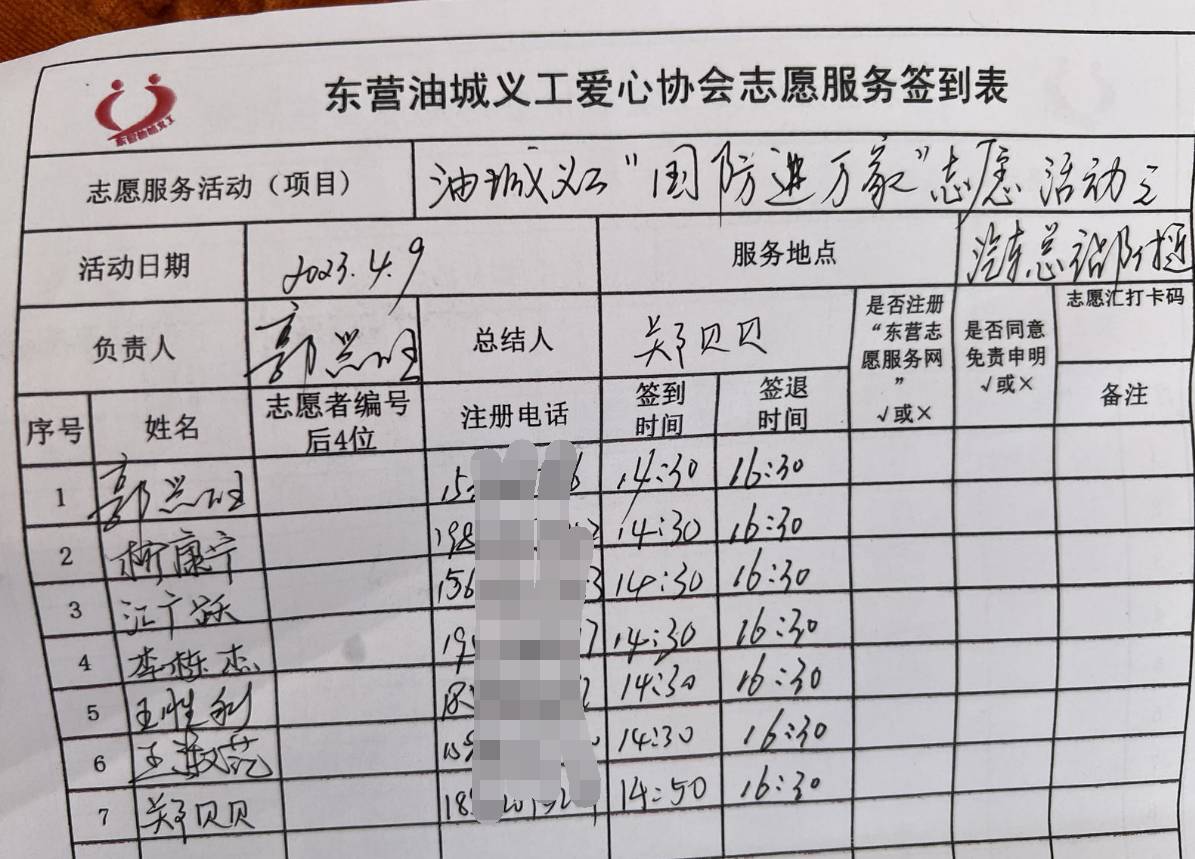 东营油城义工爱心协会志愿服务签到表
东营油城义工
志愿服务活动（项目） 油城义工“国防进万家”志愿活动
活动日期 2023.4.9 服务地点 汽车总站附近
负责人 郭 总结人 郑贝贝 是否注册“东营志愿服务网” √或× 是否同意免责申明 √或× 志愿汇打卡码
序号 姓名 志愿者编号后4位 注册电话 签到时间 签退时间 备注
1 郭 15 6 14:30 16:30
2 柳康宁 198 14:30 16:30
3 江广跃 156 3 14:30 16:30
4 李栋杰 19 7 14:30 16:30
5 王胜利 18 2 14:30 16:30
6 王淑范 14:30 16:30
7 郑贝贝 18 14:50 16:30